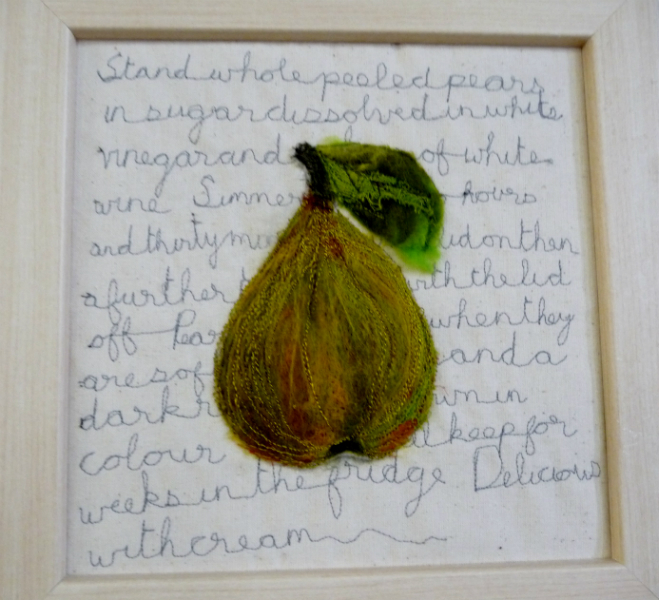 Stand whole peeled pears
in sugar dissolved in white
vinegar and of white
wine Simmer hours
and thirty lid on then
a further with the lid
off when they
are and a
dark in
colour keep for
weeks in the fridge Delicious
with cream